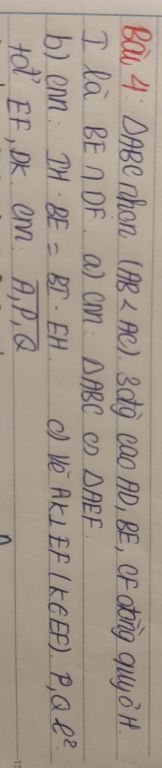 Bài 4: ΔABC nhọn (AB < AC). 3 đg cao AD, BE, CF đồng quy ở H.
I là BE ∩ DF. a) cm: ΔABC ∽ ΔAEF.
b) cm: IH · BE = BI · EH. c) Vẽ AK ⊥ EF (K ∈ EF). P, Q l²
tđ EF, DK. cm: A, P, Q